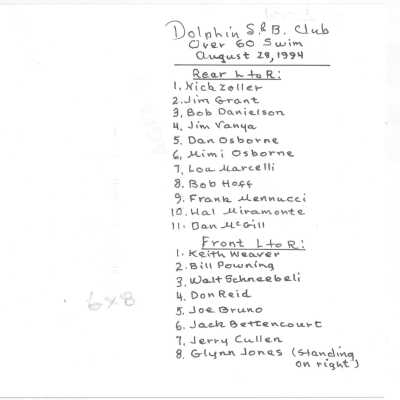 Dolphin S. & B. Club
Over 60 Swim
August 28, 1994
Rear L to R:
1. Nick Zoller
2. Jim Grant
3. Bob Danielson
4. Jim Vanya
5. Dan Osborne
6. Mimi Osborne
7. Lou Marcelli
8. Bob Hoff
9. Frank Mennucci
10. Hal Miramonte
11. Dan McGill
Front L to R:
1. Keith Weaver
2. Bill Powning
3. Walt Schneebeli
4. Don Reid
5. Joe Bruno
6. Jack Bettencourt
7. Jerry Cullen
8. Glynn Jones (standing
on right)
6x8